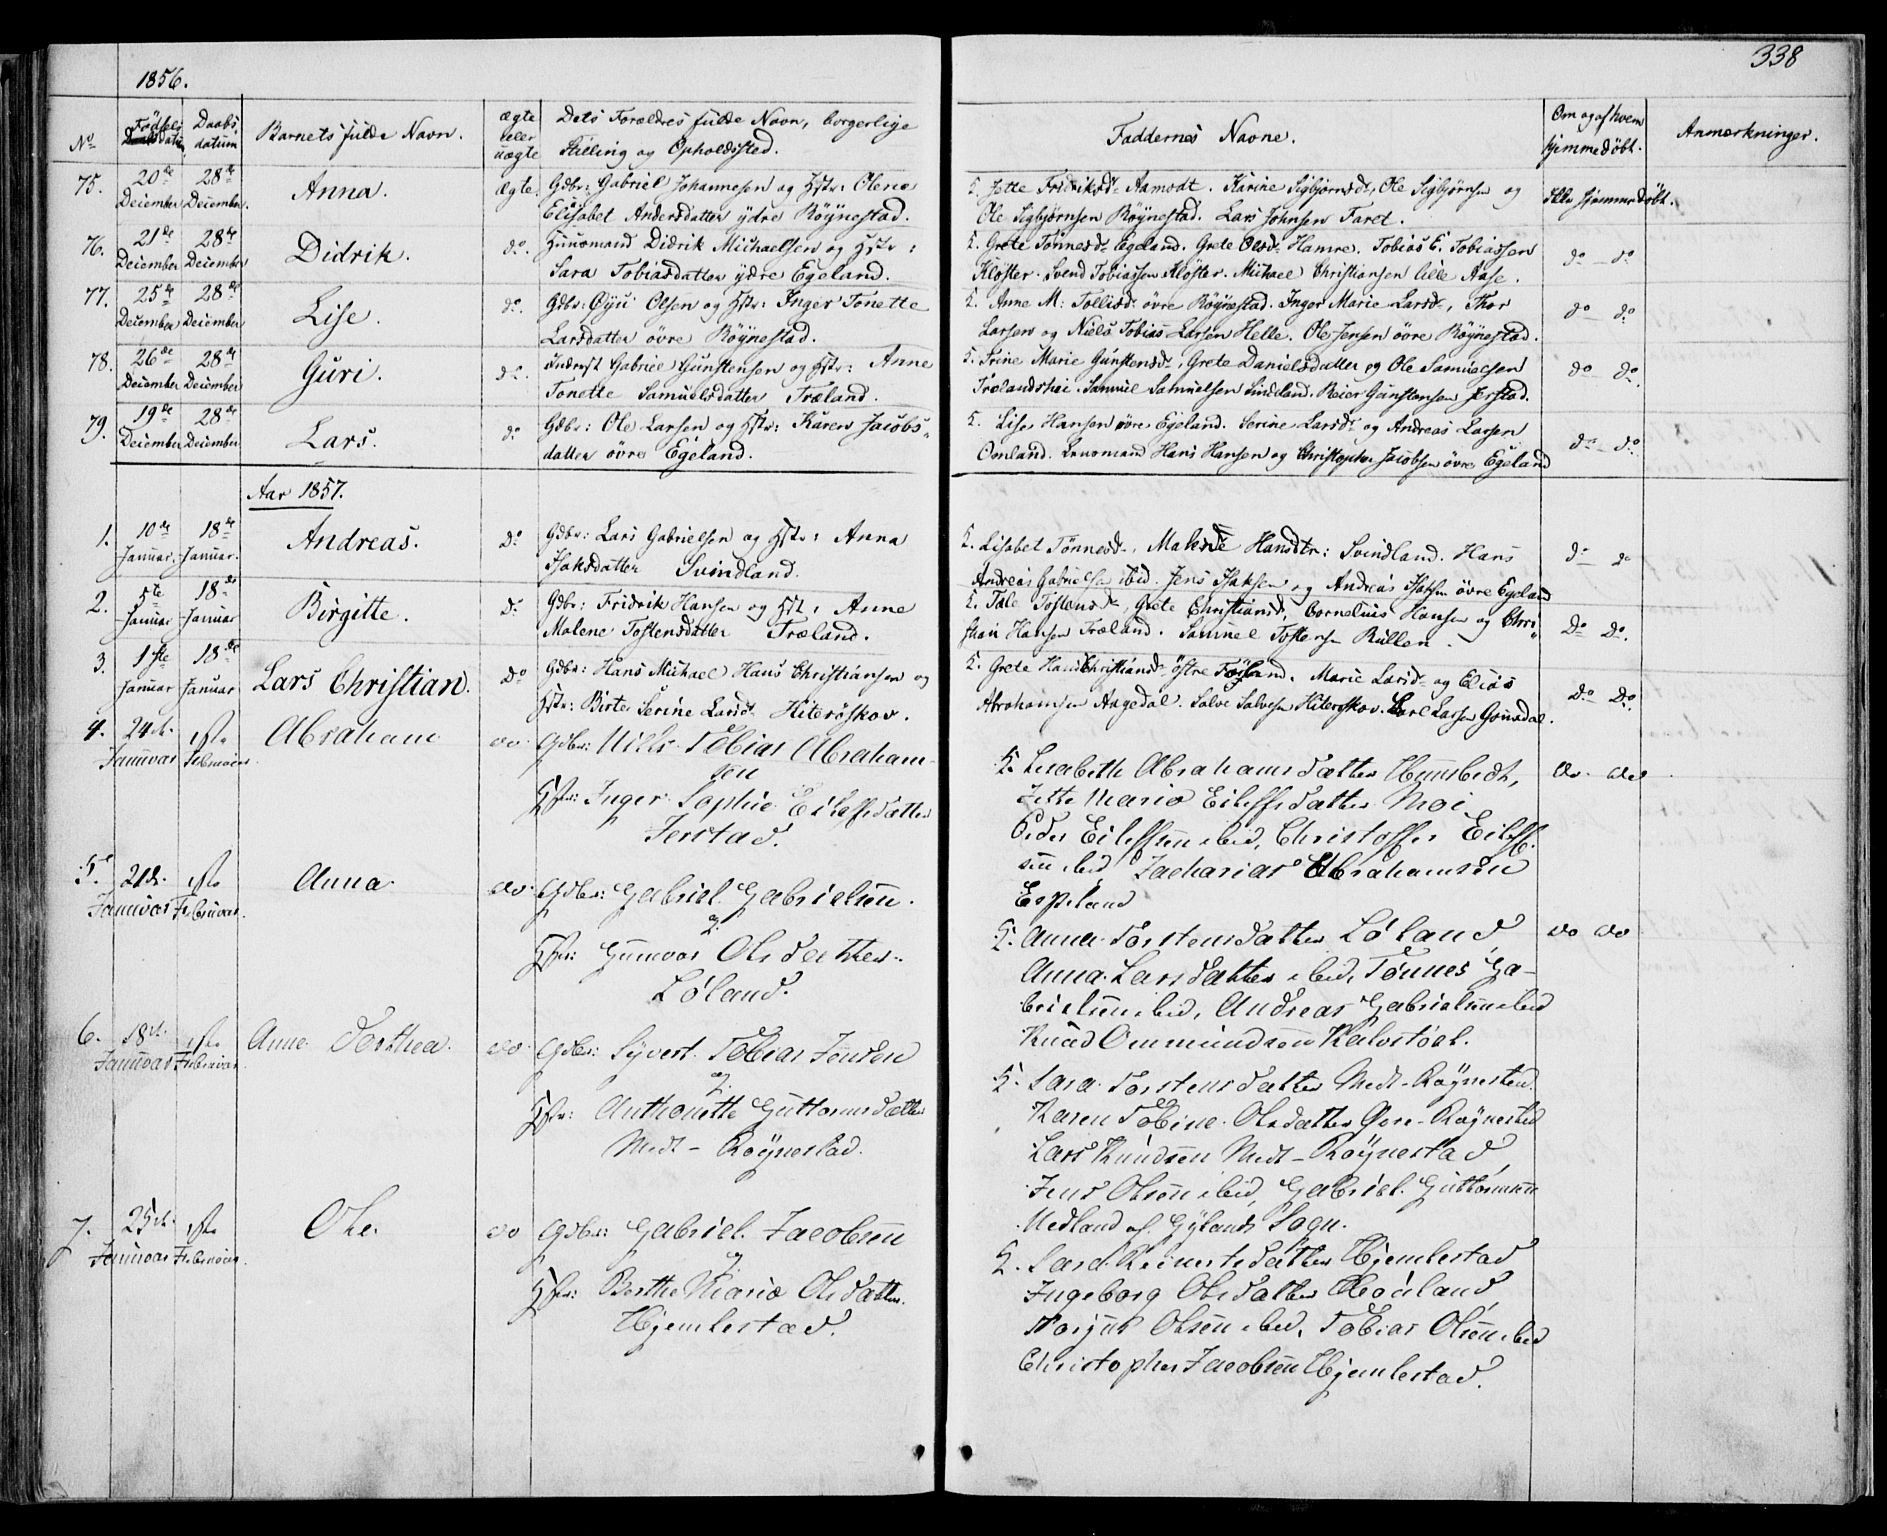 338
1856.
No
Fødsels
datum
Daabs
datum
Barnets fulde Navn.
ægte
eller
uægte
Dets Forældres fulde Navn, borgerlige
Stilling og Opholdssted.
Faddernes Navne.
Om og af hvem
hjemmedøbt.
Anmærkninger.
75.
20de
December
28de
December.
Anna.
ægte.
Gdbr: Gabriel Johannesen og Hstr: Olena
Elisabet Andersdatter ydre Röÿnestad.
F. Jette Fredriksd. Aamodt. Karine Sigbjørnsdt, Ole Sigbjørnsen og
Ole Sigbjörnsen Röÿnestad. Lars Johnsen Faret.
Ikke hjemmedöbt.
76.
21de
December
28de
December
Didrik.
do.
Huusmand Didrik Michaelsen og Hstr:
Sara Tobiasdatter ydre Egeland.
F. Grete Tønnesd. Egeland. Grete Olsd. Hamre. Tobias E. Tobiassen
Kloster. Svend Tobiassen Kloster. Michael Christiansen lille Aase.
do – do
77.
25de
December
28de
December
Lise.
do.
Gdbr: Öÿü Olsen og Hstr: Inger Tonette
Larsdatter övre Röÿnestad.
F. Anne M: Tollisd. övre Röÿnestad. Inger Marie Larsd., Thor
Larsen og Niels Tobias Larsen Helle. Ole Jensen övre Röÿnestad.
do do
78.
26de
December
28de
December
Guri.
do.
Inderst Gabriel Gunstensen og Hstr: Anne
Tonette Samuelsdatter Træland.
F. Trine Marie Gunstensd., Grete Danielsdatter og Ole Samuelsen
Trælandshei. Samuel Samuelsen Sindland. Reier Gunstensen Jerstad.
do – do.
79.
19de
December
28de
December
Lars.
do
Gdbr: Ole Larsen og Hstr: Karen Jacobs-
datter övre Egeland.
F. Lise Hansen övre Egeland. Serine Larsd. og Andreas Larsen
Omland. Hans Hansen og Christopher Jacobsen övre Egeland
do – do.
Aar 1857.
1.
10de
Januar.
18de
Januar.
Andreas.
do
Gdbr: Lars Gabrielsen og Hstr: Anna
Isaksdatter Svindland.
F. Lisabet Tönnesd., Malene Hansdtr: Svindland. Hans
Andreas Gabrielsen ibid. Jens Isaksen og Andreas Isaksen övre Egeland
do – do
2.
5te
Januar
18de
Januar
Birgitte.
do
Gdbr: Fridrik Hansen og Hst: Anne
Malene Tostensdatter Træland.
F. Tale Tostensd., Grete Christiansd, Cornelius Hansen og Chri-
stian Hansen Træland. Samuel Tostensen Rullen.
Do Do.
3.
1ste
Januar
18de
Januar
Lars Christian.
Do
Gdbr: Hans Michael Hans Christiansen og
Hstr: Birte Serine Larsd. Hiteröskov.
F. Grete Hans Christiansd. östre Föÿland. Marie Larsd. og Elias
Abrahamsen Aagedal. Salve Salvesen Hiteröskov. Carl Larsen Gausdal.
Do Do.
4.
24de
Januvar
1ste
Februvar
Abraham
do
Gdbr: Niels Tobias Abraham-
sen
Hstr: Inger Sophie Eilefsdatter
Jerstad.
F. Lisabeth Abrahamsdatter Hunsbedt,
Jette Maria Eileffsdatter Moi
Peder Eileffsen ibid, Christoffer Eileff-
sen ibid Zacharias Abrahamsen
Espeland
do. do
5.
21de.
Januvar
1ste
Februvar.
Anna
do
Gdbr: Gabriel Gabrielsen.
og
Hstr: Gunvor Olsdatter.
Löland.
F. Anna Torstensdatter Löland,
Anna Larsdatter ibid, Tönnes Ga-
brielsen ibid, Andreas Gabrielsen ibid
Knud Ommundsen Kalvstöel.
do do
6.
18de.
Januvar
1ste
Februvar
Anne Dorthea.
do
Gdbr: Syvert Tobias Jensen
og
Hstr: Anthonette Guttormsdatter
Medt-Röÿnestad.
F. Sara Torstensdatter Medt-Röÿnestad.
Karen Tobine Olsdatter Övre-Röÿnestad
Lars Knudsen Medt-Röÿnestad,
Jens Olsen ibid, Gabriel Guttormsen
Medland af Gÿlands Sogn.
7.
25de.
Januvar
1ste
Februvar.
Ole.
do
Gdbr: Gabriel Jacobsen
og
Hstr: Berthe Maria Olsdatter.
Hjemlestad.
F. Sara Reinertsdatter Hjemlestad
Ingeborg Olsdatter Höiland,
Olsen ibid, Tobias Olsen ibid
Christopher Jacobsen Hjemlestad.